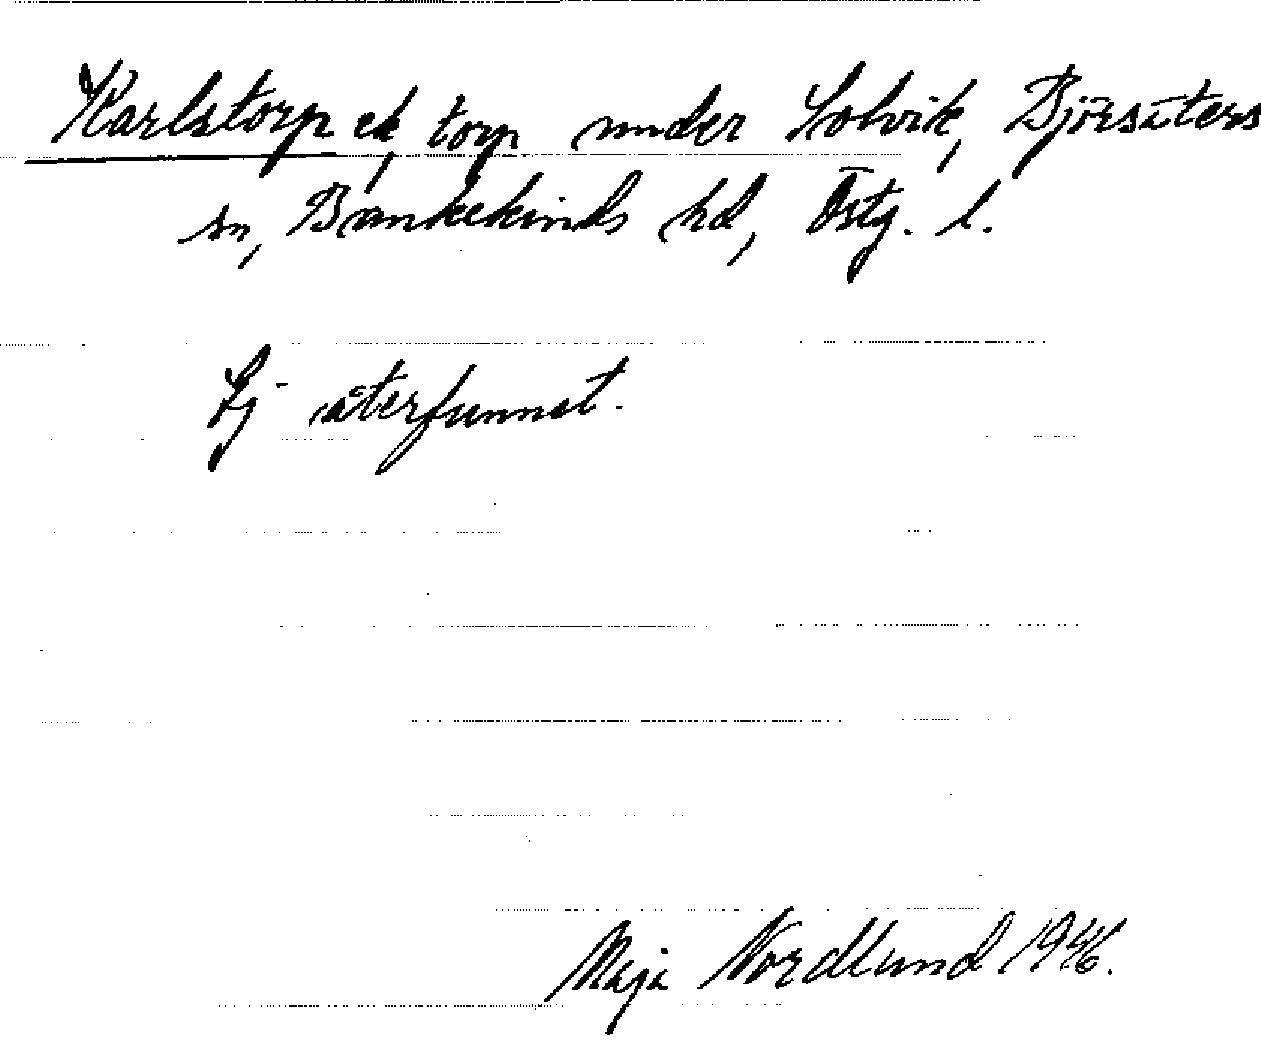 Karlstorp ek, torp under Solvik, Björsäters
sn, Bankekinds hd, Östg. l.
Ej återfunnet.
Maja Nordlund 1946.